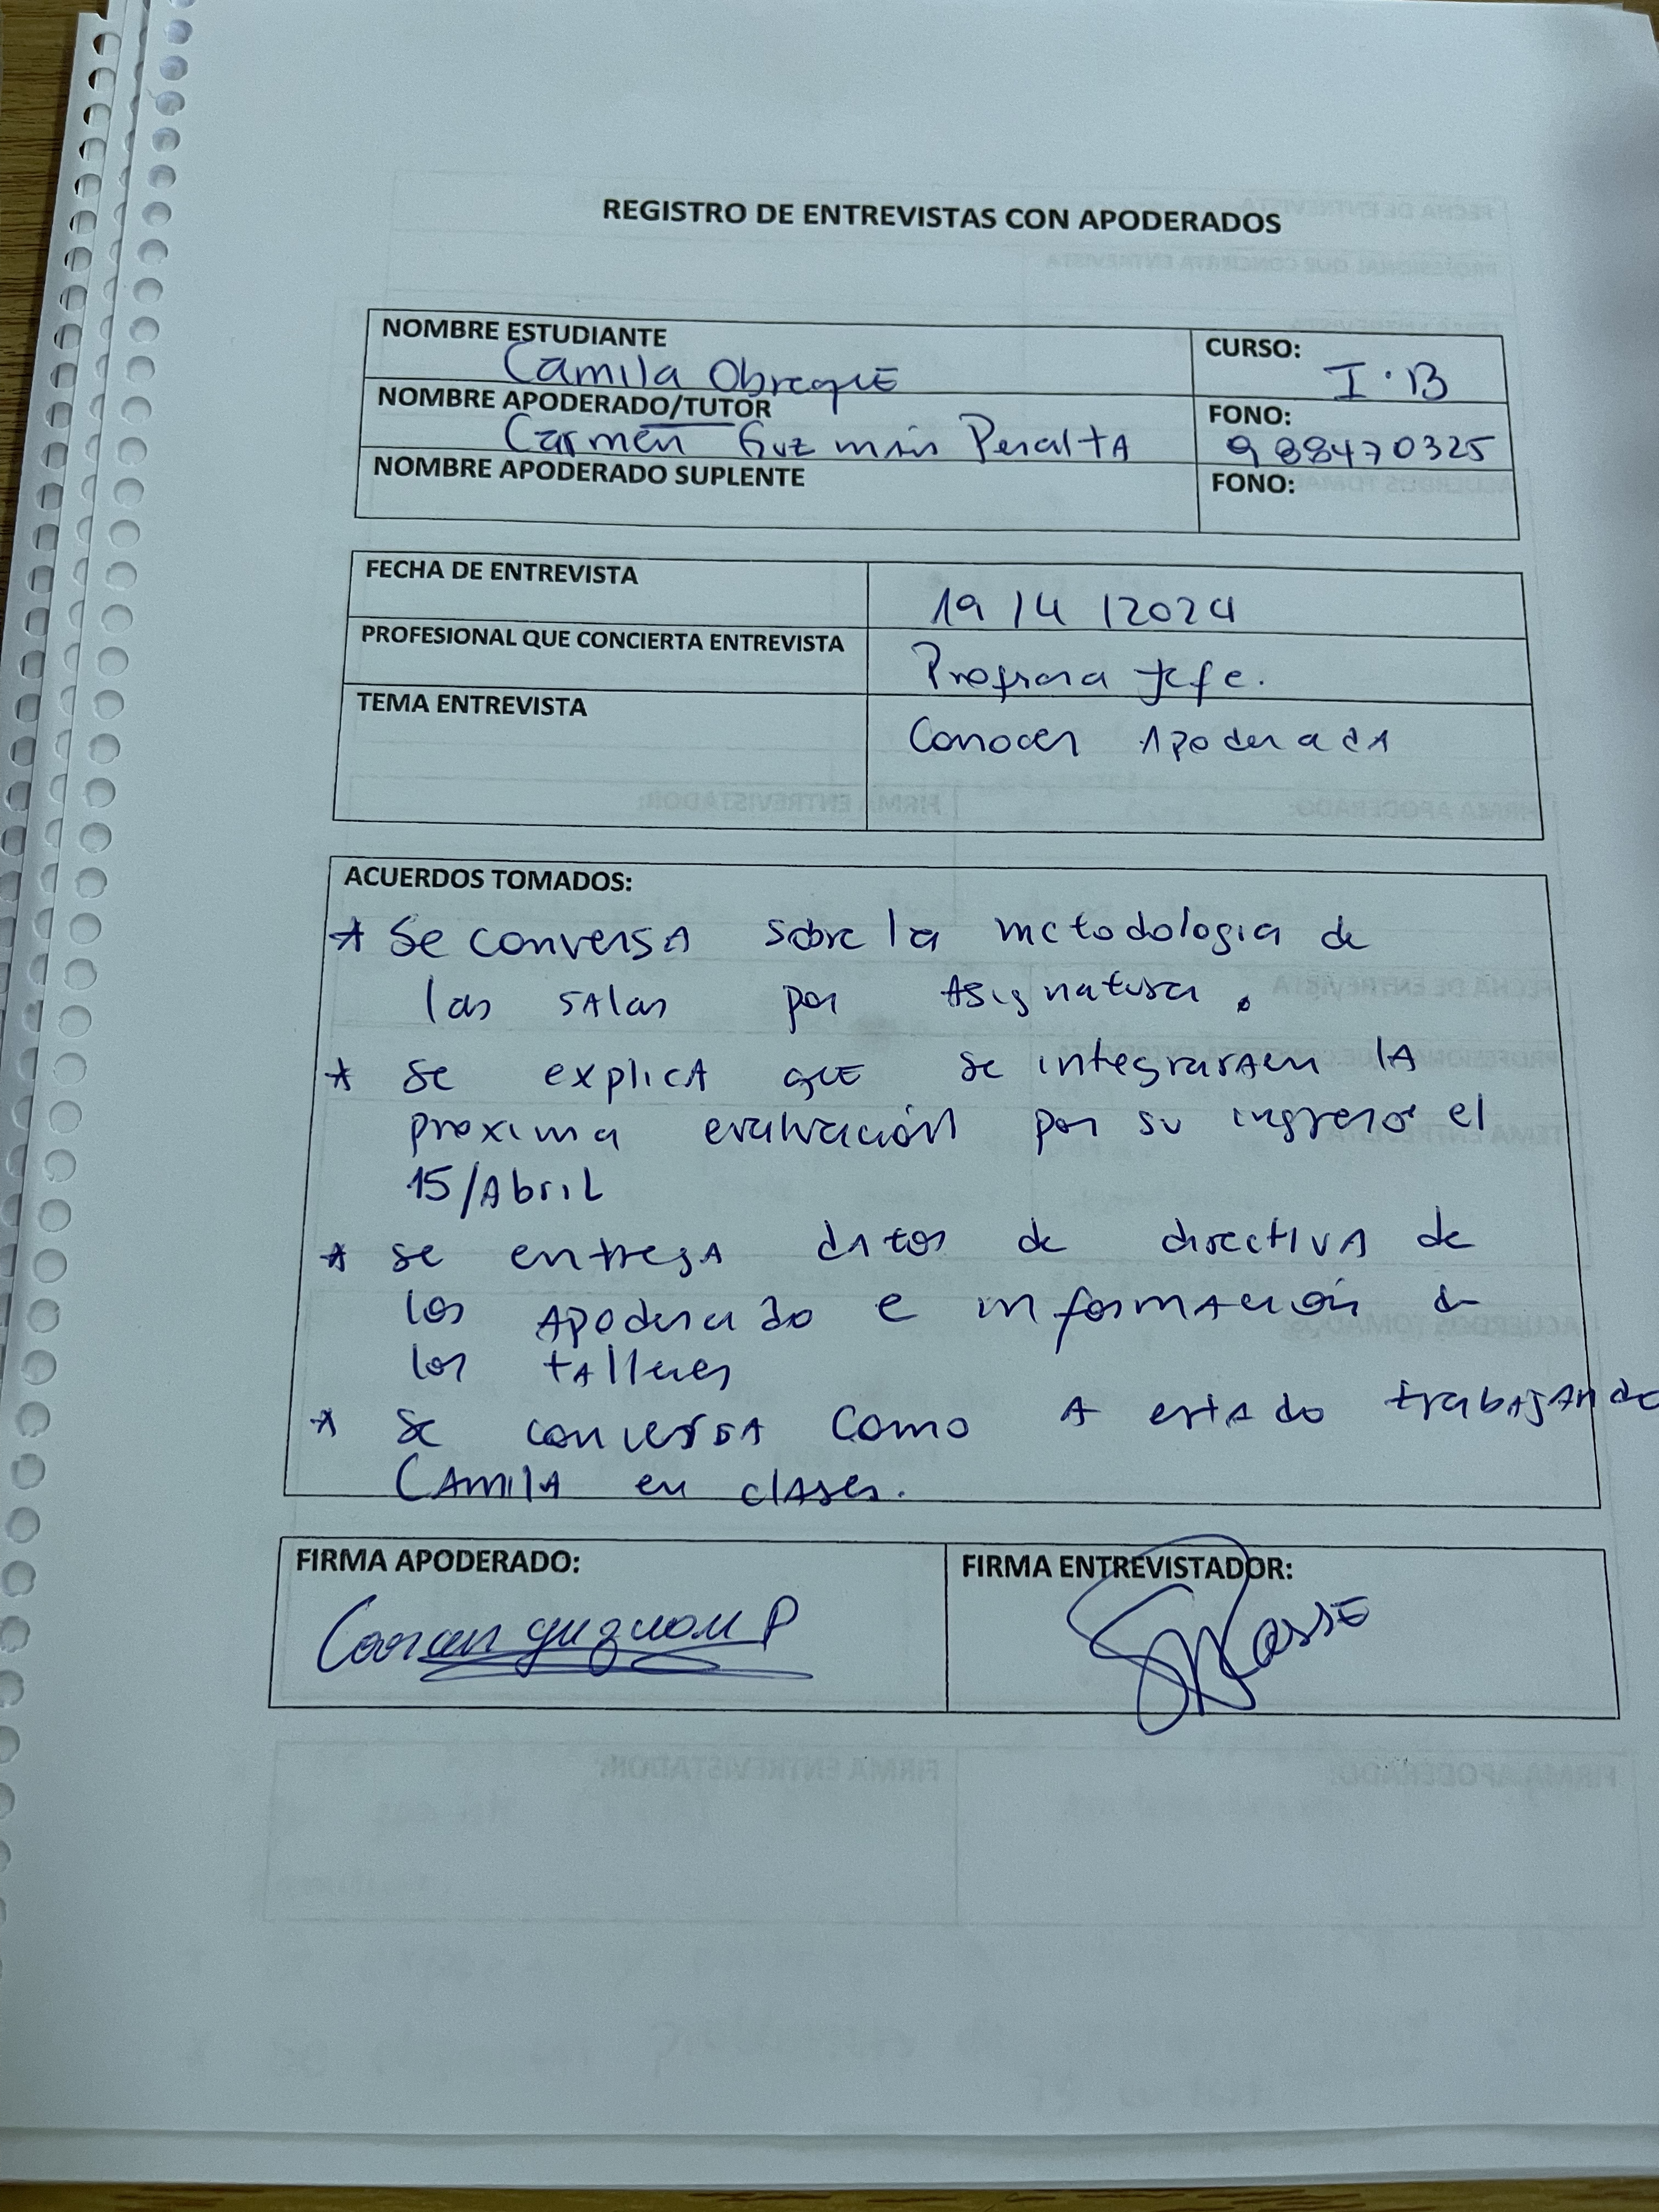 REGISTRO DE ENTREVISTAS CON APODERADOS
NOMBRE ESTUDIANTE
Camila Obreque
CURSO:
I·B
NOMBRE APODERADO/TUTOR
Carmen Guzmán Peralta
FONO:
988470325
NOMBRE APODERADO SUPLENTE
FONO:
FECHA DE ENTREVISTA
19/4/2024
PROFESIONAL QUE CONCIERTA ENTREVISTA
Profesora Jefe.
TEMA ENTREVISTA
Conocer Apoderada
ACUERDOS TOMADOS:
* Se conversa sobre la metodologia de
las salas por Asignatura.
* se explica que se integraraen la
proxima evaluación por su ingreso el
15/Abril
* se entrega datos de directiva de
los Apoderado e información de
los talleres
* se conversa como a estado trabajando
Camila en clases.
FIRMA APODERADO:
Carmen Guzman P
FIRMA ENTREVISTADOR: